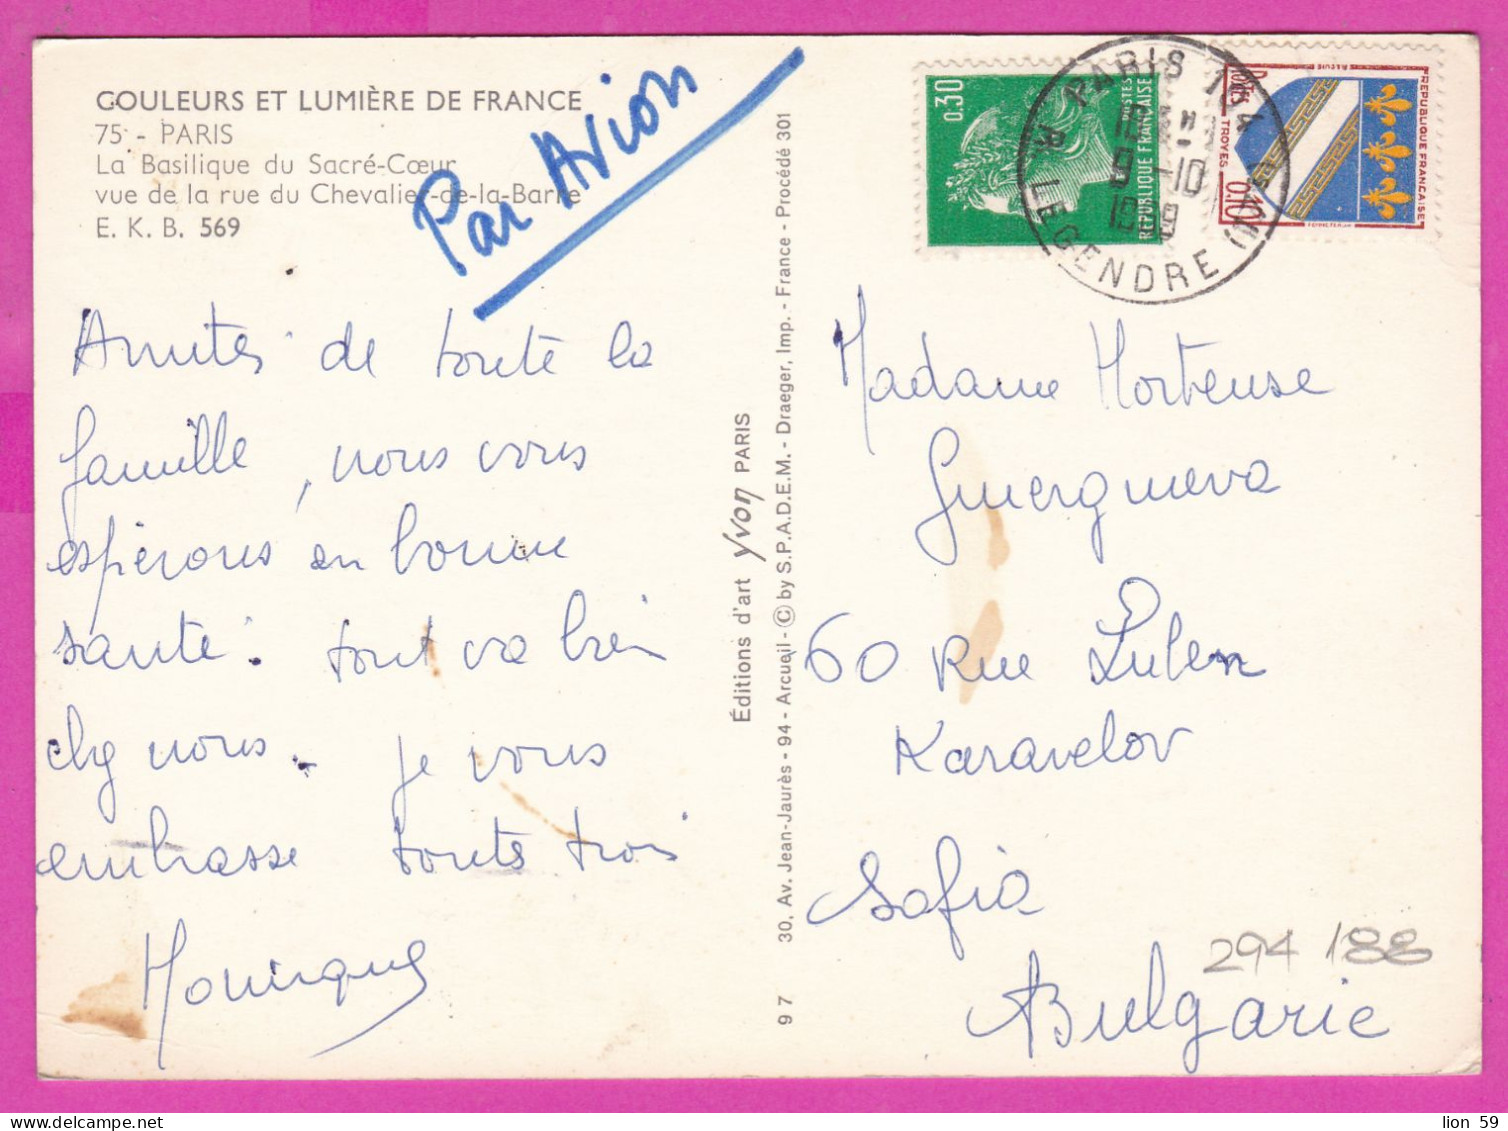 COULEURS ET LUMIÈRE DE FRANCE
75 - PARIS
La Basilique du Sacré-Cœur
vue de la rue du Chevalier-de-la-Barre
E. K. B. 569
Par Avion
Amitiés de toute la
famille, nous vous
espérons en bonne
santé. tout va bien
chez nous. je vous
embrasse toutes trois
Monique
Éditions d'art yvon PARIS
30, Av. Jean-Jaurès - 94 - Arcueil - © by S.P.A.D.E.M. - Draeger, Imp. - France - Procédé 301
9 7
0,30
POSTES
RÉPUBLIQUE FRANÇAISE
PARIS
9 -10
R. LEGENDRE
REPUBLIQUE FRANÇAISE
Postes
TROYES
0.10
Madame Hortense
Guerguieva
60 Rue Luben
Karavelov
Sofia
Bulgarie
294 188
lion 59